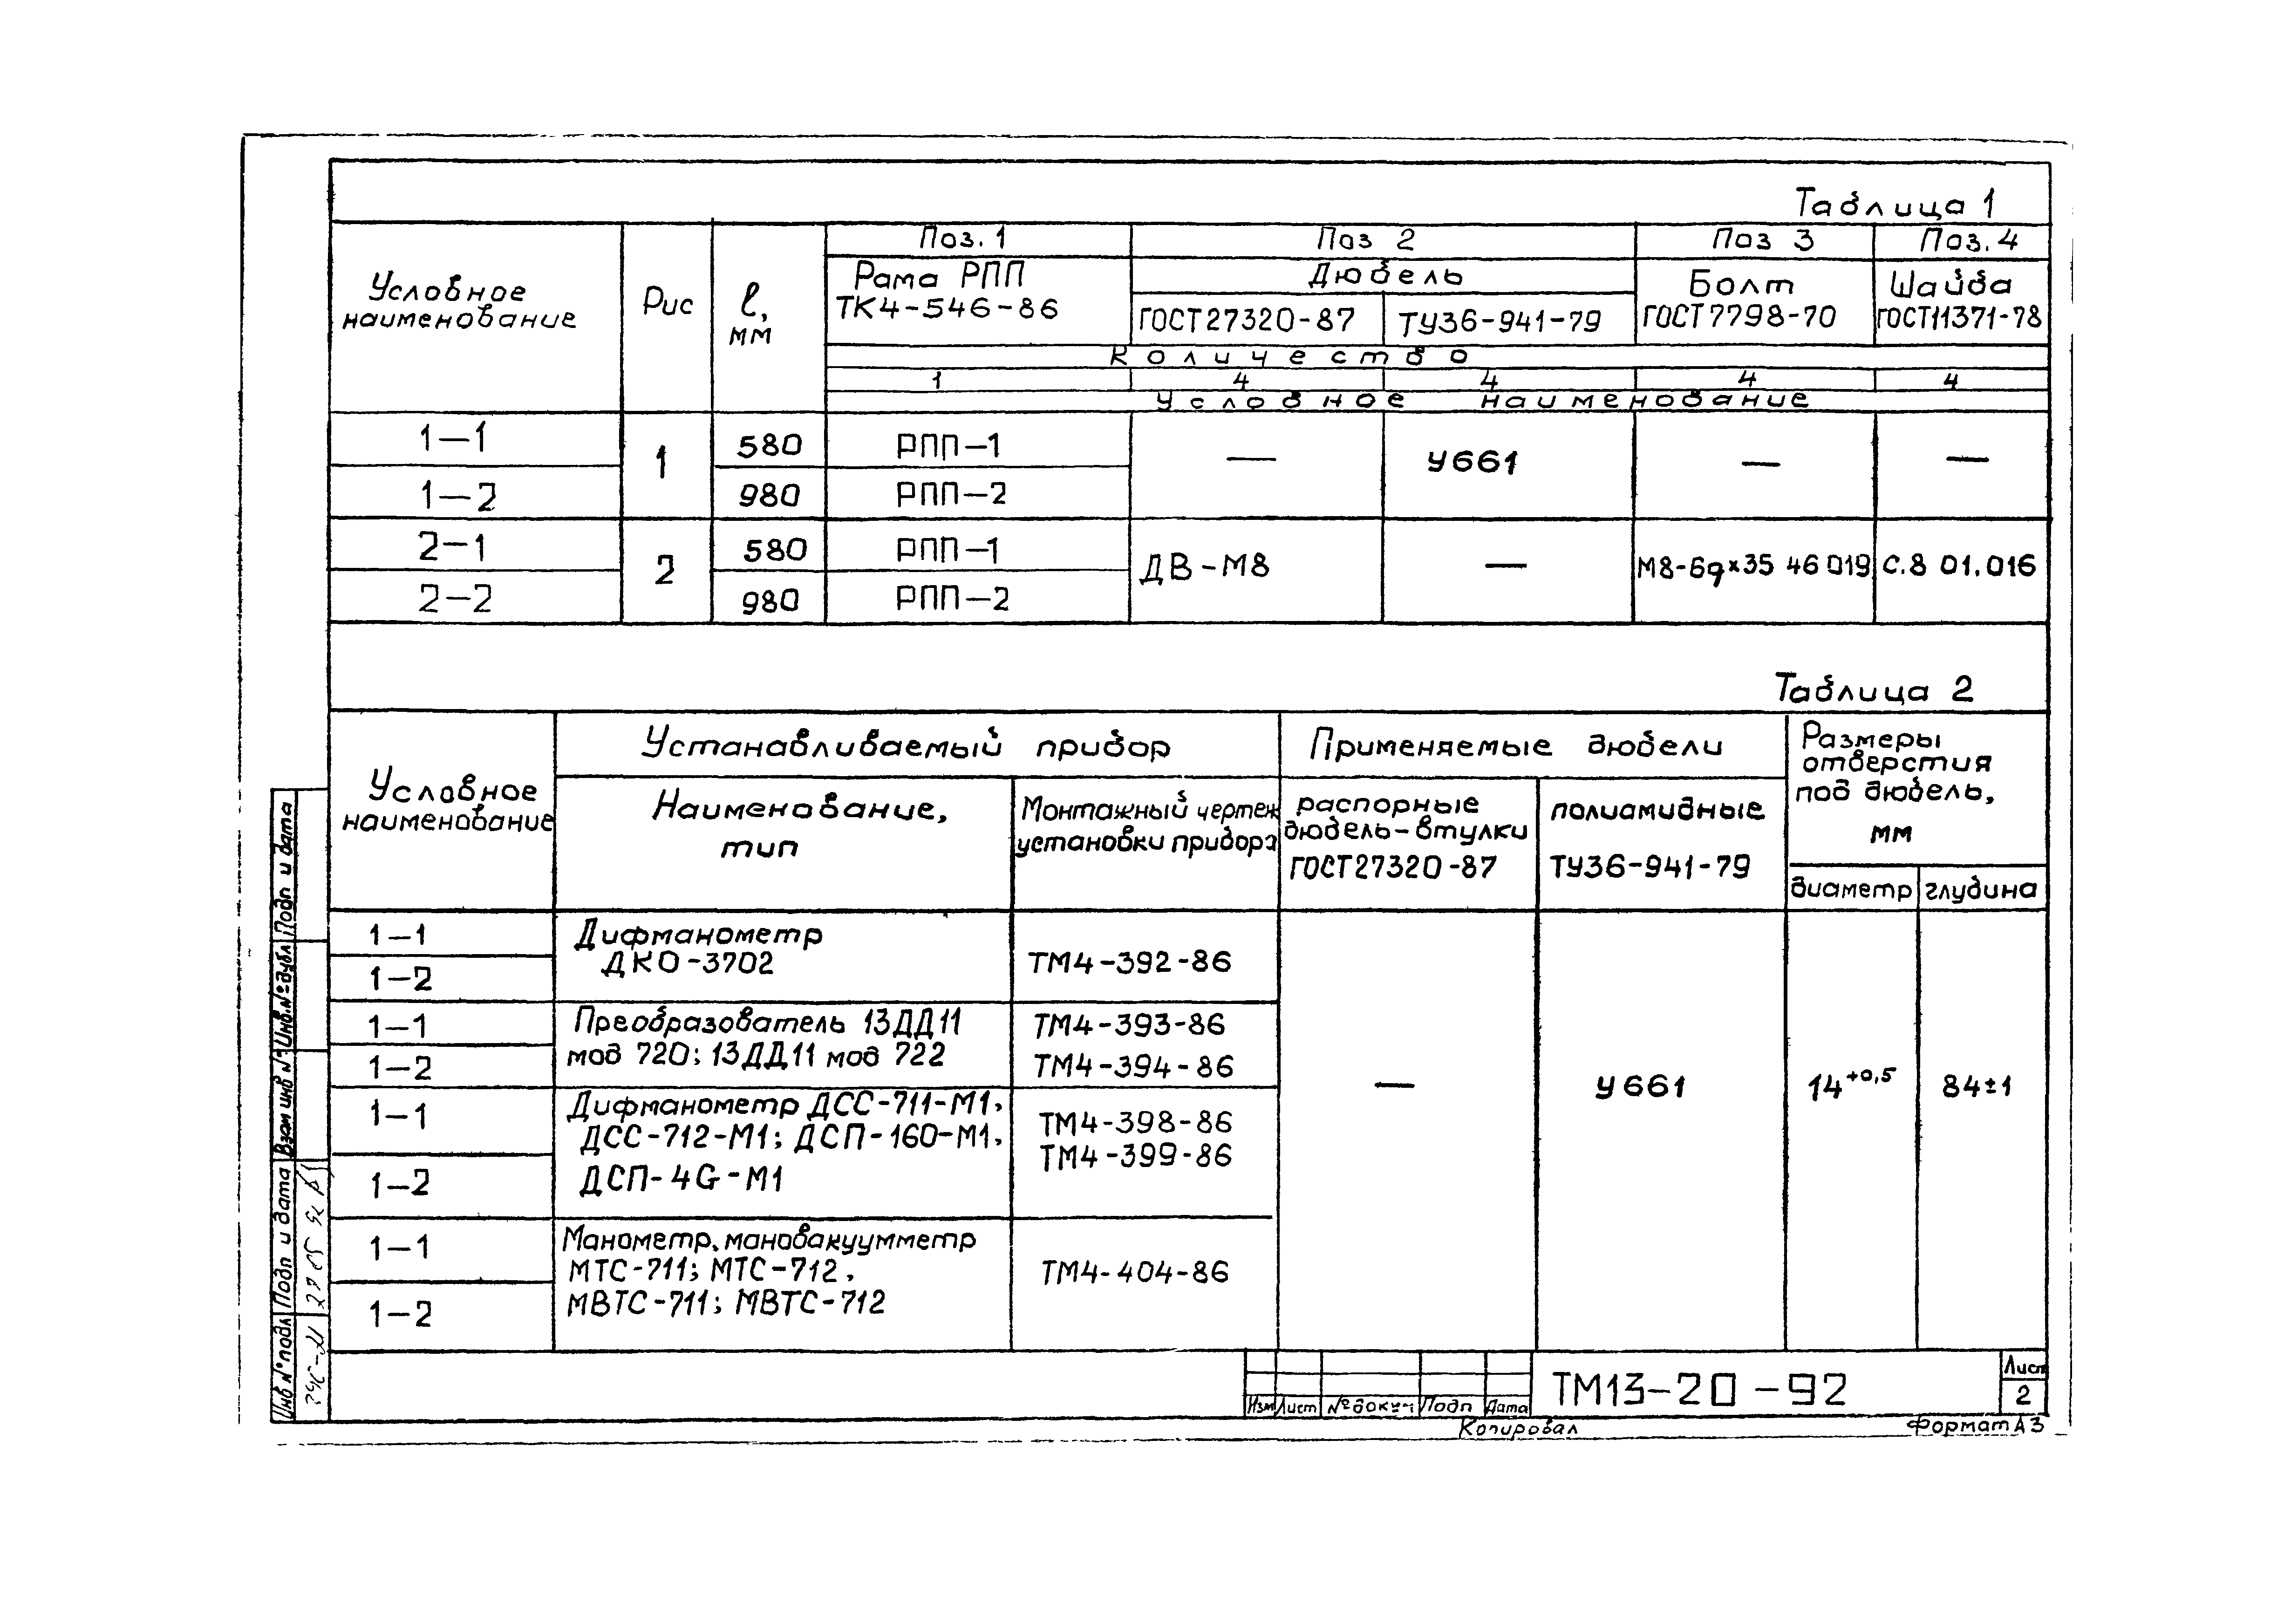 Таблица 1
Условное наименование
Рис
ℓ, мм
Поз. 1
Поз 2
Поз 3
Поз. 4
Рама РПП
ТК4-546-86
Дюбель
ГОСТ27320-87
ТУ36-941-79
Болт
ГОСТ7798-70
Шайба
ГОСТ11371-78
Количество
1 4 4 4 4
Условное наименование
1-1 1 580 РПП-1 — У661 — —
1-2 980 РПП-2
2-1 2 580 РПП-1 ДВ-М8 — М8-6gх35 46 019 С.8 01.016
2-2 980 РПП-2
Таблица 2
Условное наименование
Устанавливаемый прибор
Применяемые дюбели
Размеры
отверстия
под дюбель,
мм
Наименование,
тип
Монтажный чертеж
установки прибора
распорные
дюбель-втулки
ГОСТ27320-87
полиамидные
ТУ36-941-79
диаметр
глубина
1-1
1-2
Дифманометр
ДКО-3702
ТМ4-392-86
1-1
1-2
Преобразователь 13ДД11
мод 720; 13ДД11 мод 722
ТМ4-393-86
ТМ4-394-86
1-1
1-2
Дифманометр ДСС-711-М1,
ДСС-712-М1; ДСП-160-М1,
ДСП-4G-М1
ТМ4-398-86
ТМ4-399-86
1-1
1-2
Манометр, мановакуумметр
МТС-711; МТС-712,
МВТС-711; МВТС-712
ТМ4-404-86
—
У661
14+0,5
84±1
Подп и дата
Инв.№ дубл
Взам инв №
Подп и дата
Инв № подл
Изм Лист № докум Подп Дата
ТМ13-20-92
Лист
2
Копировал
Формат А3